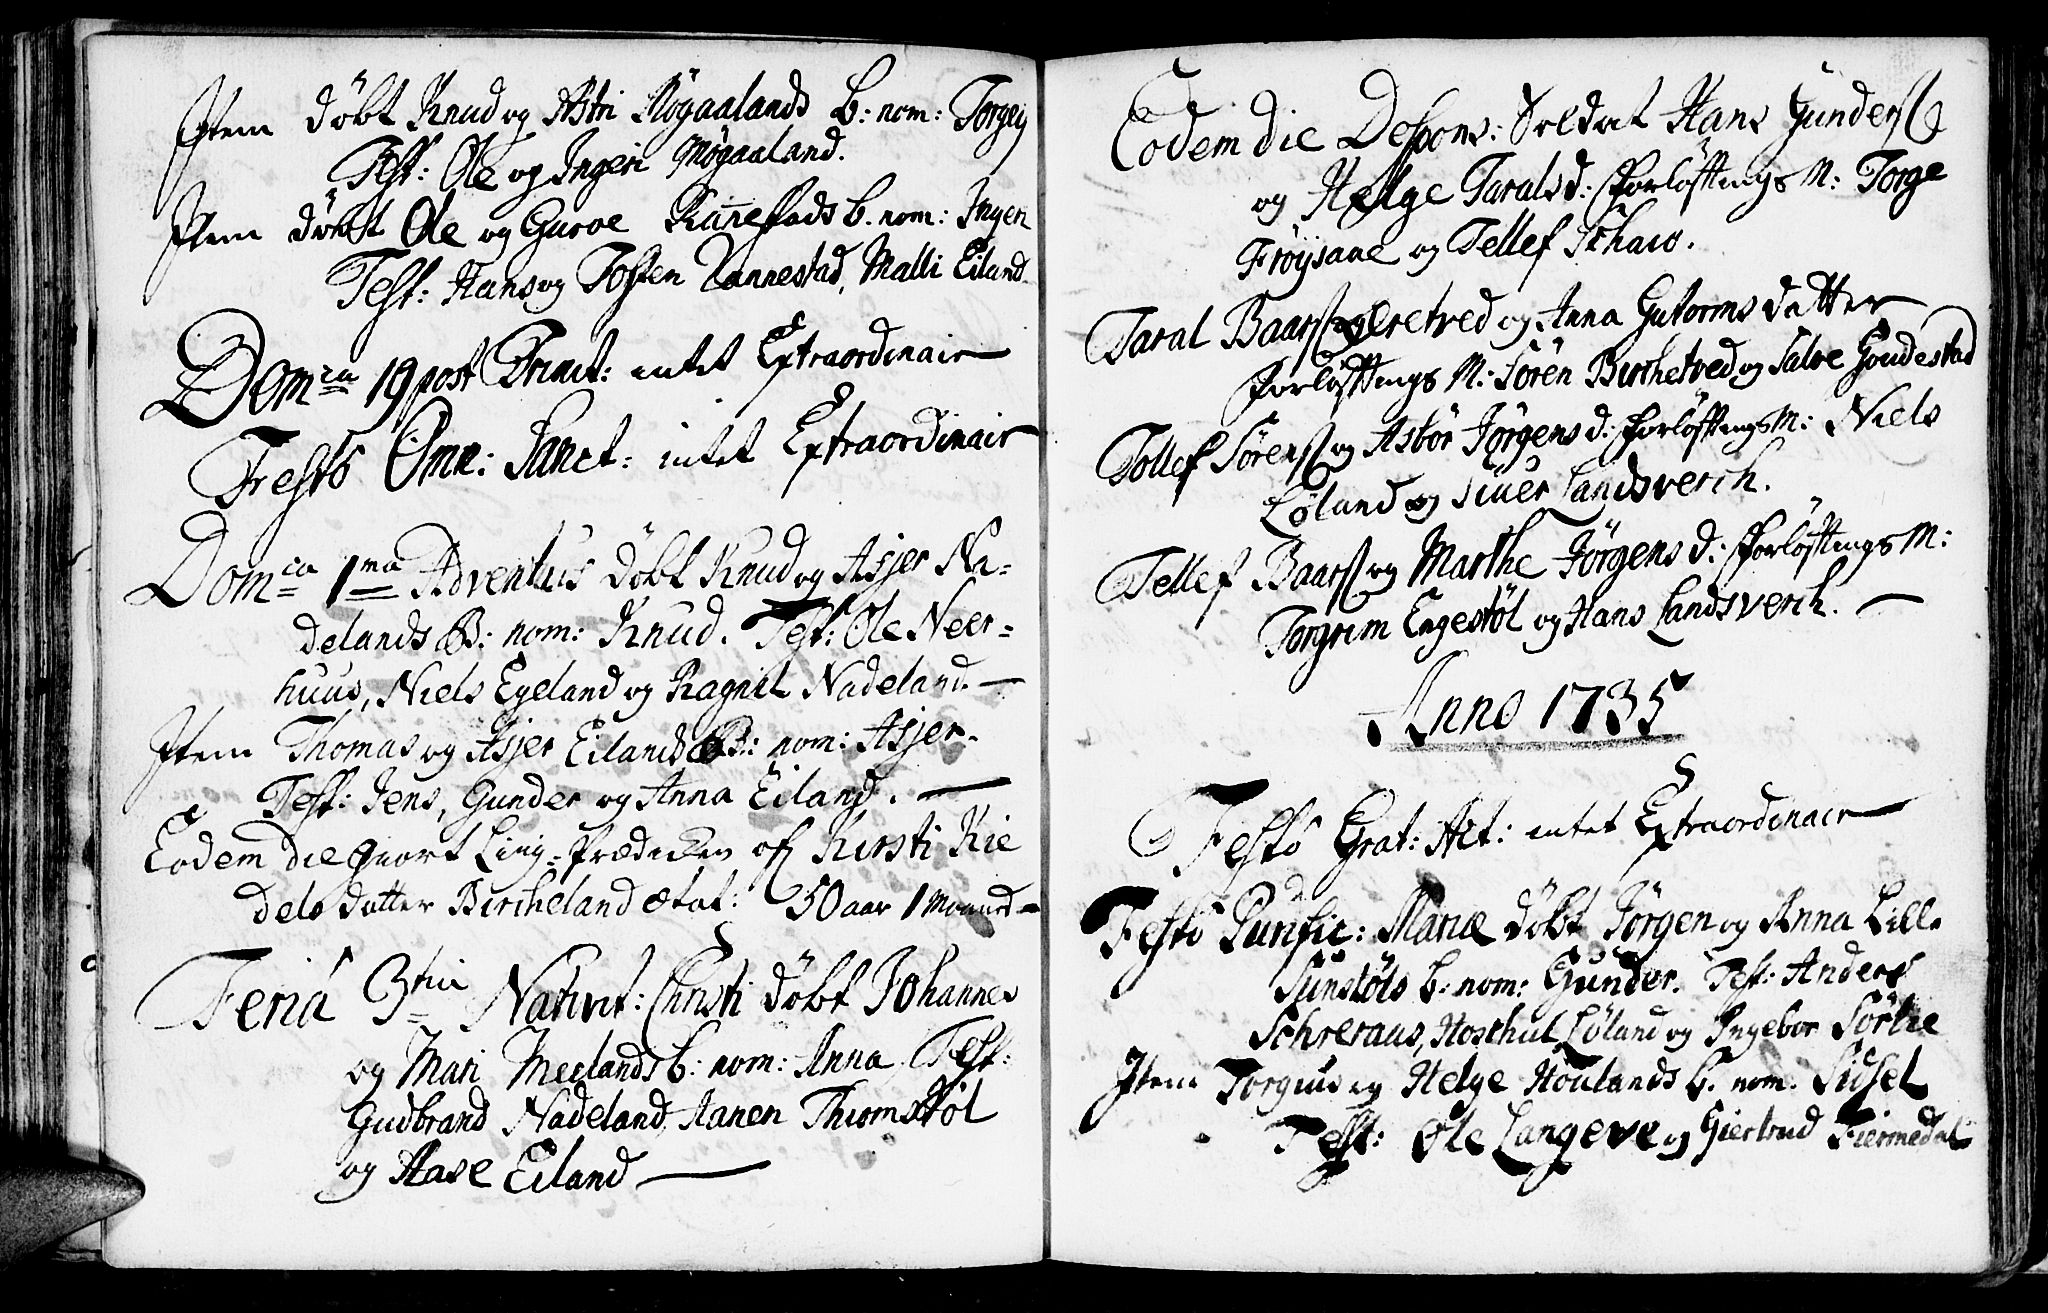 Item døbt Knud og Astri Møgaalands B: nom: Torgey
Test: Ole og Ingeri Møgaaland.
Item døbt Ole og Guroe Rannestads b. nom: Ingeri
Test: Hans og Tosten Rannestad, Malli Eiland.
Dom:ca 19 post Trinit: intet Extraordinair
Festo Omn: Sanct: intet Extraordinair
Dom:ca 1ma Adventus døbt Knud og Asjer Na-
delands B: nom: Knud. Test: Ole Neer-
huus, Niels Egeland og Ragnil Nadeland. —
Item Thomas og Asjer Eilands B: nom: Asjer.
Test: Jens, Gunder og Anna Eiland. —
Eodem die giort Liig-Prædicken af Kirsti Kie
dels datter Bircheland ætat: 50 aar 1 Maaned
Feriâ 3tia Nativit: Christi døbt Johannes
og Mari Meelands b: nom: Anna Test:
Gudbrand Nadeland, Hanen Thiomstøl
og Aase Eiland —
Eodem die Despons: Soldat Hans Gunders
og Helge Taralsd: Forløftnings M: Torge
Frøysaae og Tellef Schaio.
Taral Baars og Anna Gutorms datter
Forløftnings M: Søren Birchetved og Salve Goudestad
Tollef Sørens og Asbør Jørgensd: Forløftnings M: Niels
Løland og Siuer Landsverch.
Tellef Baars og Marthe Jørgensd: Forløftnings M:
Torgrim Engestøl og Hans Landsverch. —
Anno 1735
Festo Grat: Act: intet Extraordinair
Festo Purific: Mariæ døbt Jørgen og Anna Lille
Sunstøls b: nom: Gunder. Test: Anders
Schreraas, Høschul Løland og Ingebor Sørlie
Item Torgius og Helge Houlands b. nom: Sidsel
Test: Ole Langeve og Giertrud Fiermedal